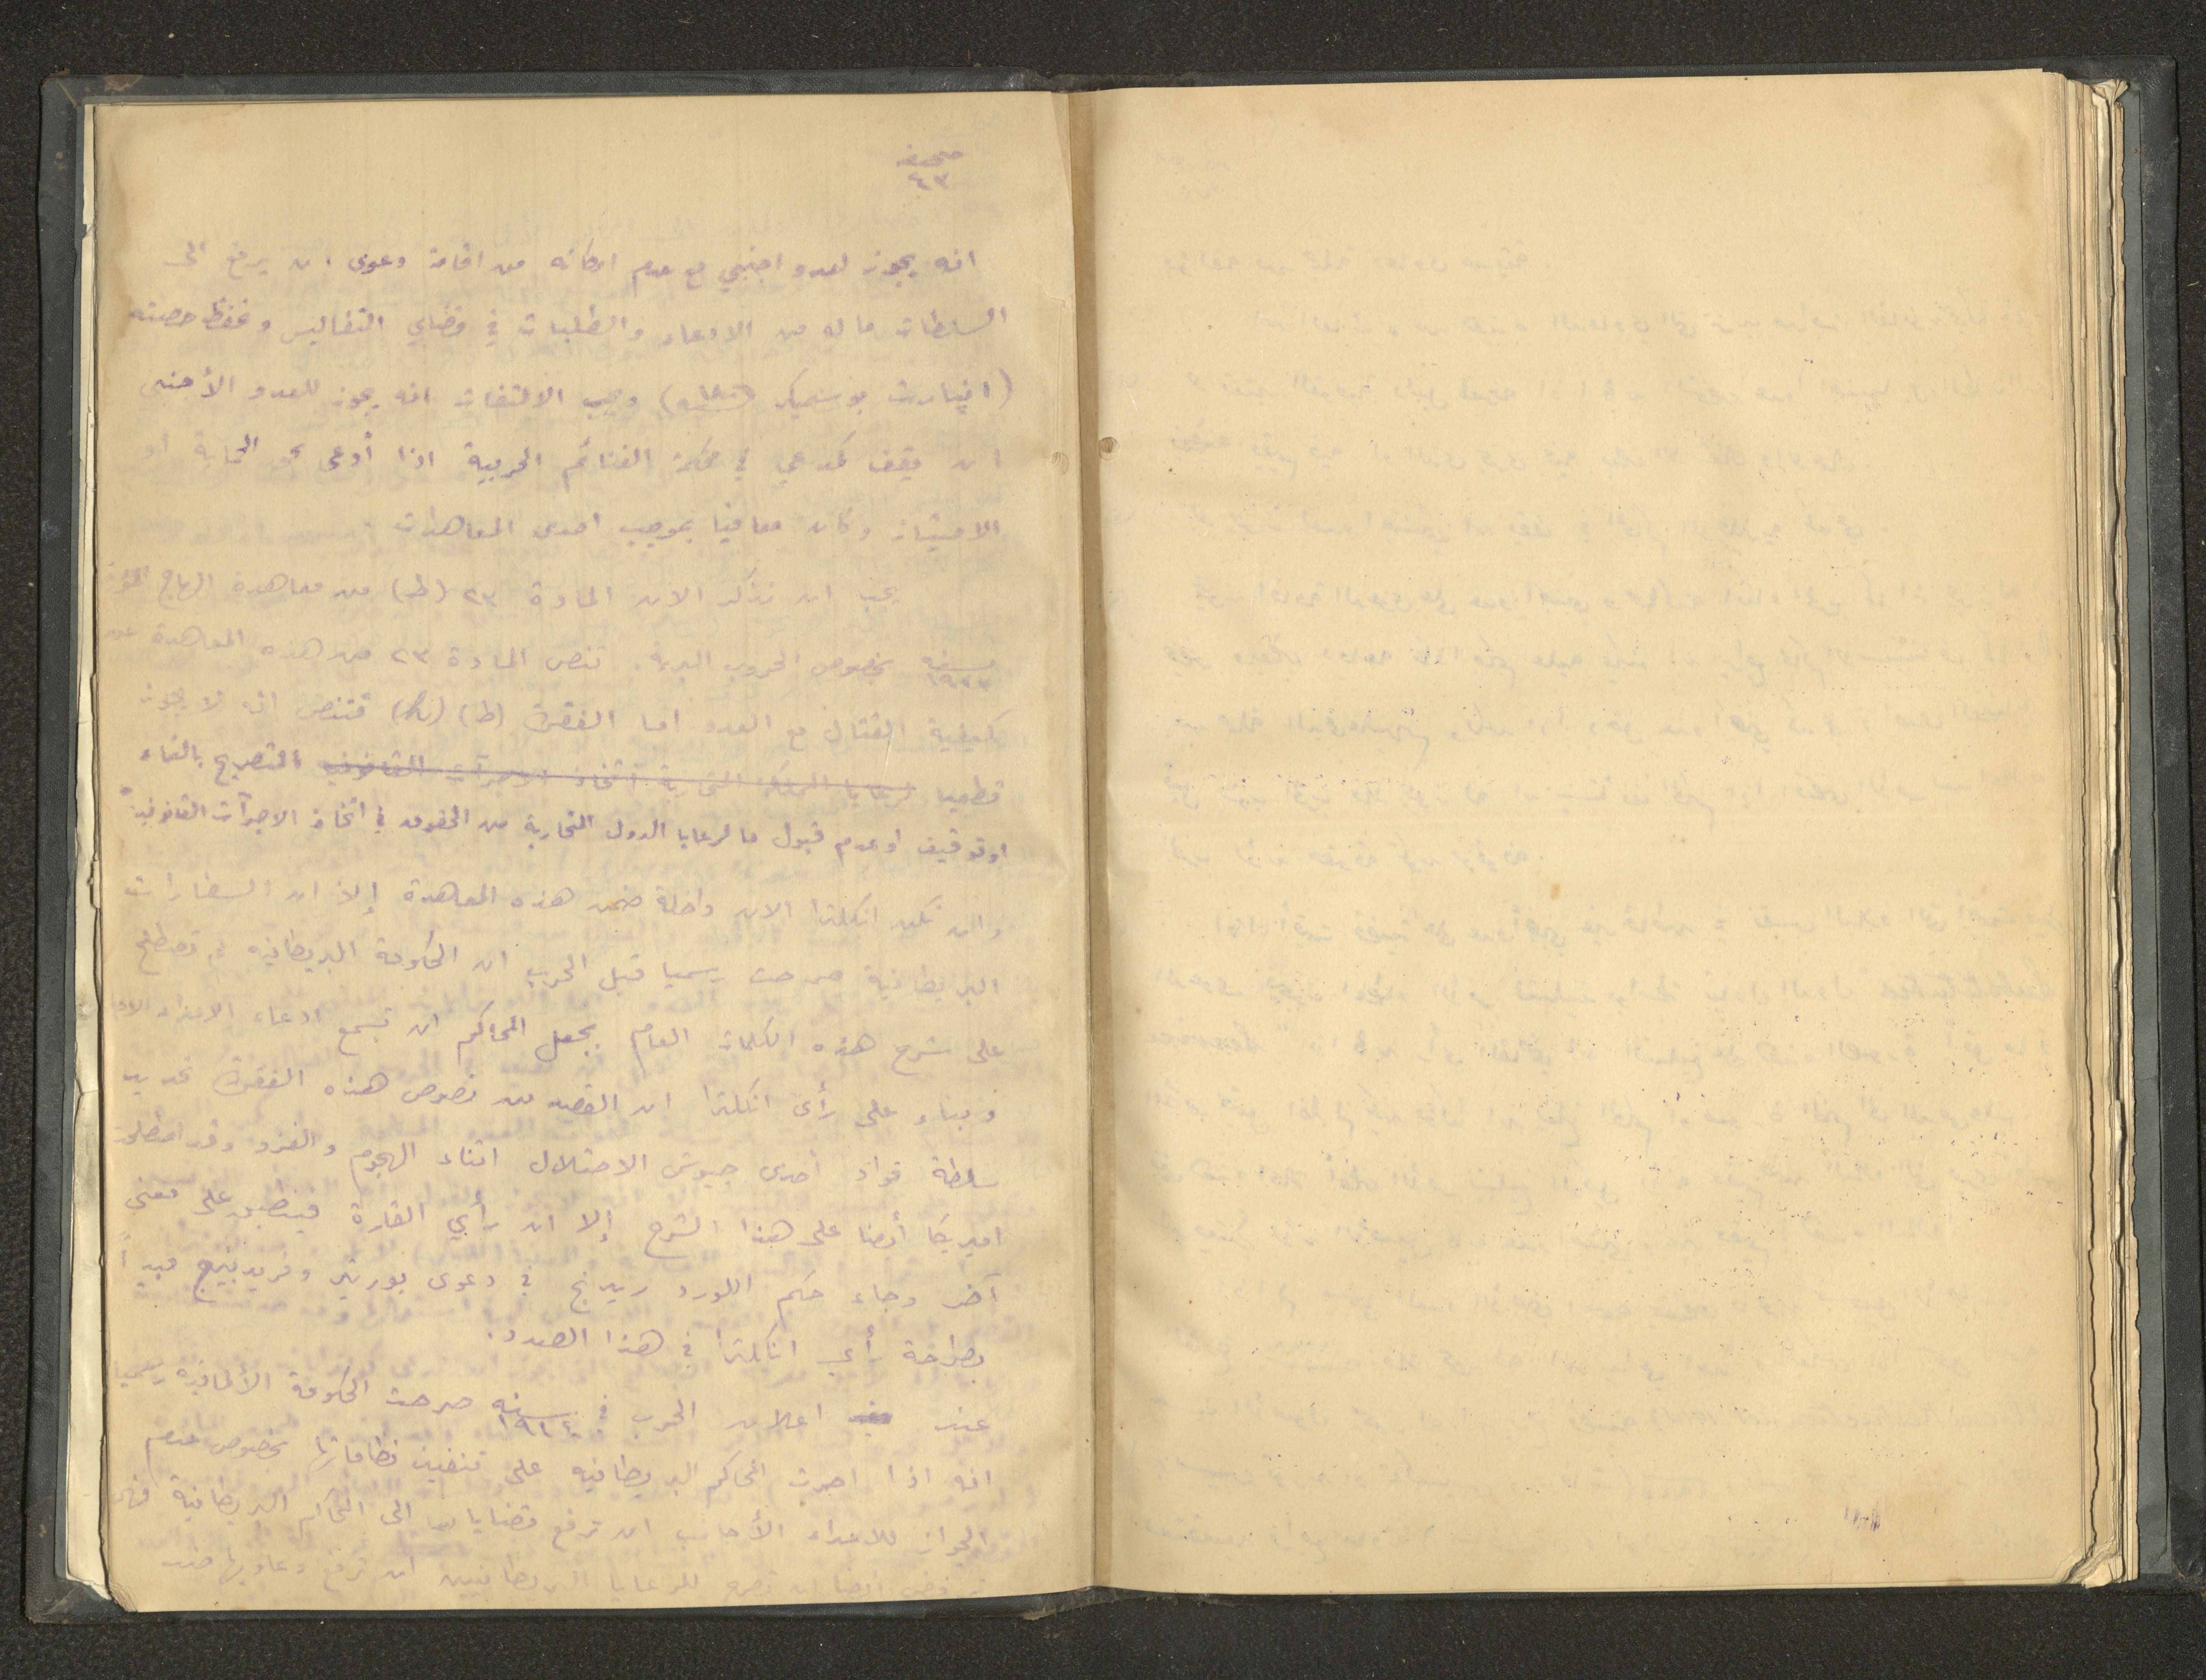 صحيفه
٤٣
انه يجوز لعدو اجنبي مع عدم امكانه من اقامة دعوى ان يرفع الى
السلطات ماله من الادعاء والطلبات في قضايي التفاليس وتحفظ حصته
(اكسپارت بوسميكر) ويجب الالتفات انه يجوز للعدو الأجنبى
ان يقف كمدعي في محكمة الغنائم الحربية اذا أدعى بحق الحماية او
الامتياز وكان معافيا بموجب احدى المعاهدات
يجب ان نذكر الان المادة ٢٣ (ط) من معاهدة الهاج
سنه بخصوص الحروب البرية. تنص المادة ٢٣ من هذه المعاهدة عن
كيفية القتال مع العدو اما الفقرة (ط) فتنص انه لا يجوز
قطعيا لرعايا المملكة المتحاربة اتخاذ الاجرآت القانونيه التصريح بالغاء
او توقيف او عدم قبول ما لرعايا الدول المتحاربة من الحقوق في اتخاذ الاجرآت القانونية
والن تكون انكلترا الان داخلة ضمن هذه المعاهدة إلا ان السفارات
البريطانية صرحت رسميا قبل الحرب ان الحكومة البريطانيه لم تصطلح
على شرح هذه الكلمات العام بجعل المحاكم ان تسمع ادعاء الاعداء
وبناء على رأى انكلترا ان القصد من نصوص هذه الفقرة تحديد
سلطة قواد أحدى جيوش الاحتلال اثناء الهجوم والغزو وقد اصطلحت
امريكا أيضا على هذا الشرح إلا ان رأي القارة فينطبق على معنى
آخر وجاء حكم اللورد ريدنج في دعوى بورتر وفريدنبرج مبيداً
بصراحة رأي انكلترا في هذا الصدد.
عند اعلان الحرب في سنه ١٩١٤ صرحت الحكومة الألمانيه رسميا
انه اذا اجبرت المحاكم البريطانيه على تنفيذ نظاماتها بخصوص عدم
الجواز للاعداء الأجانب ان ترفع قضاياها الى المحاكم البريطانية فهى
ترفض ايضا ان تصرح للرعايا البريطانيين ان ترفع دعاويها ضد